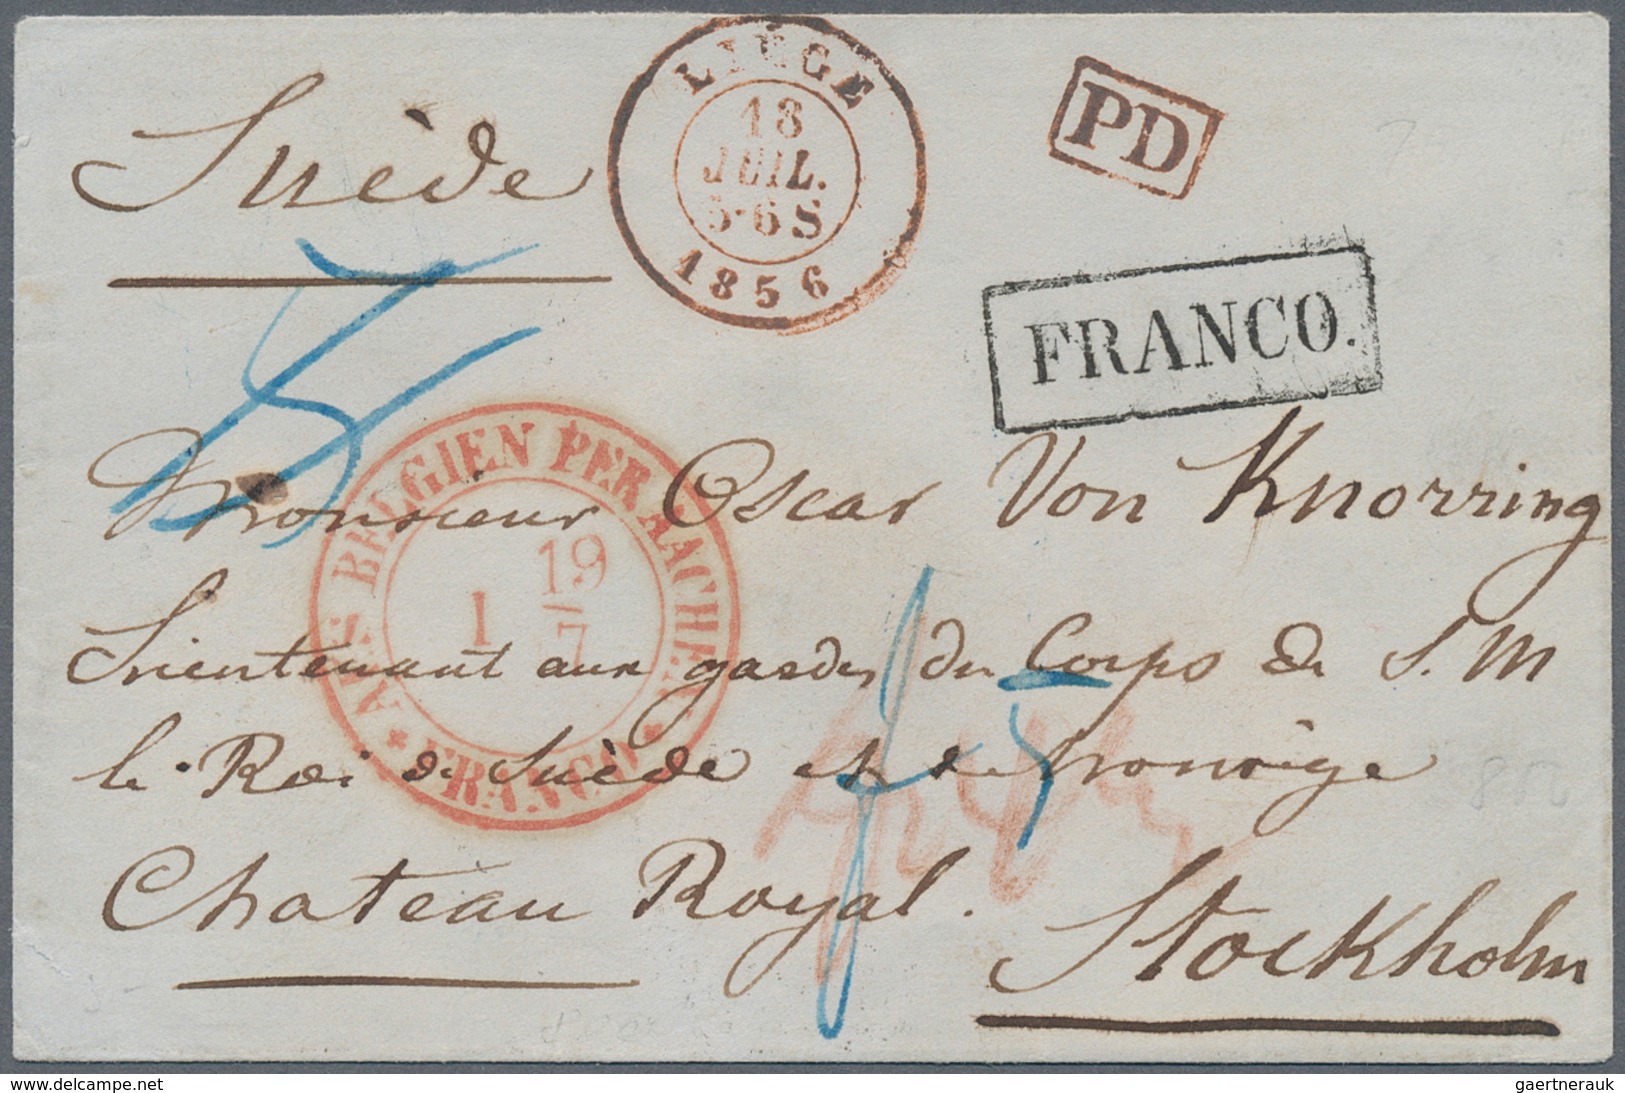 LIÉGE
18
JUIL.
5-6 S
1856
PD
Suède
FRANCO.
Monsieur Oscar Von Knorring
AUS BELGIEN PER AACHEN
19
1
7
* FRANCO *
Lieutenant aux gardes du Corps de S. M
le Roi de Suède et de Norvège
Chateau Royal. Stockholm
850
gaertnerauk